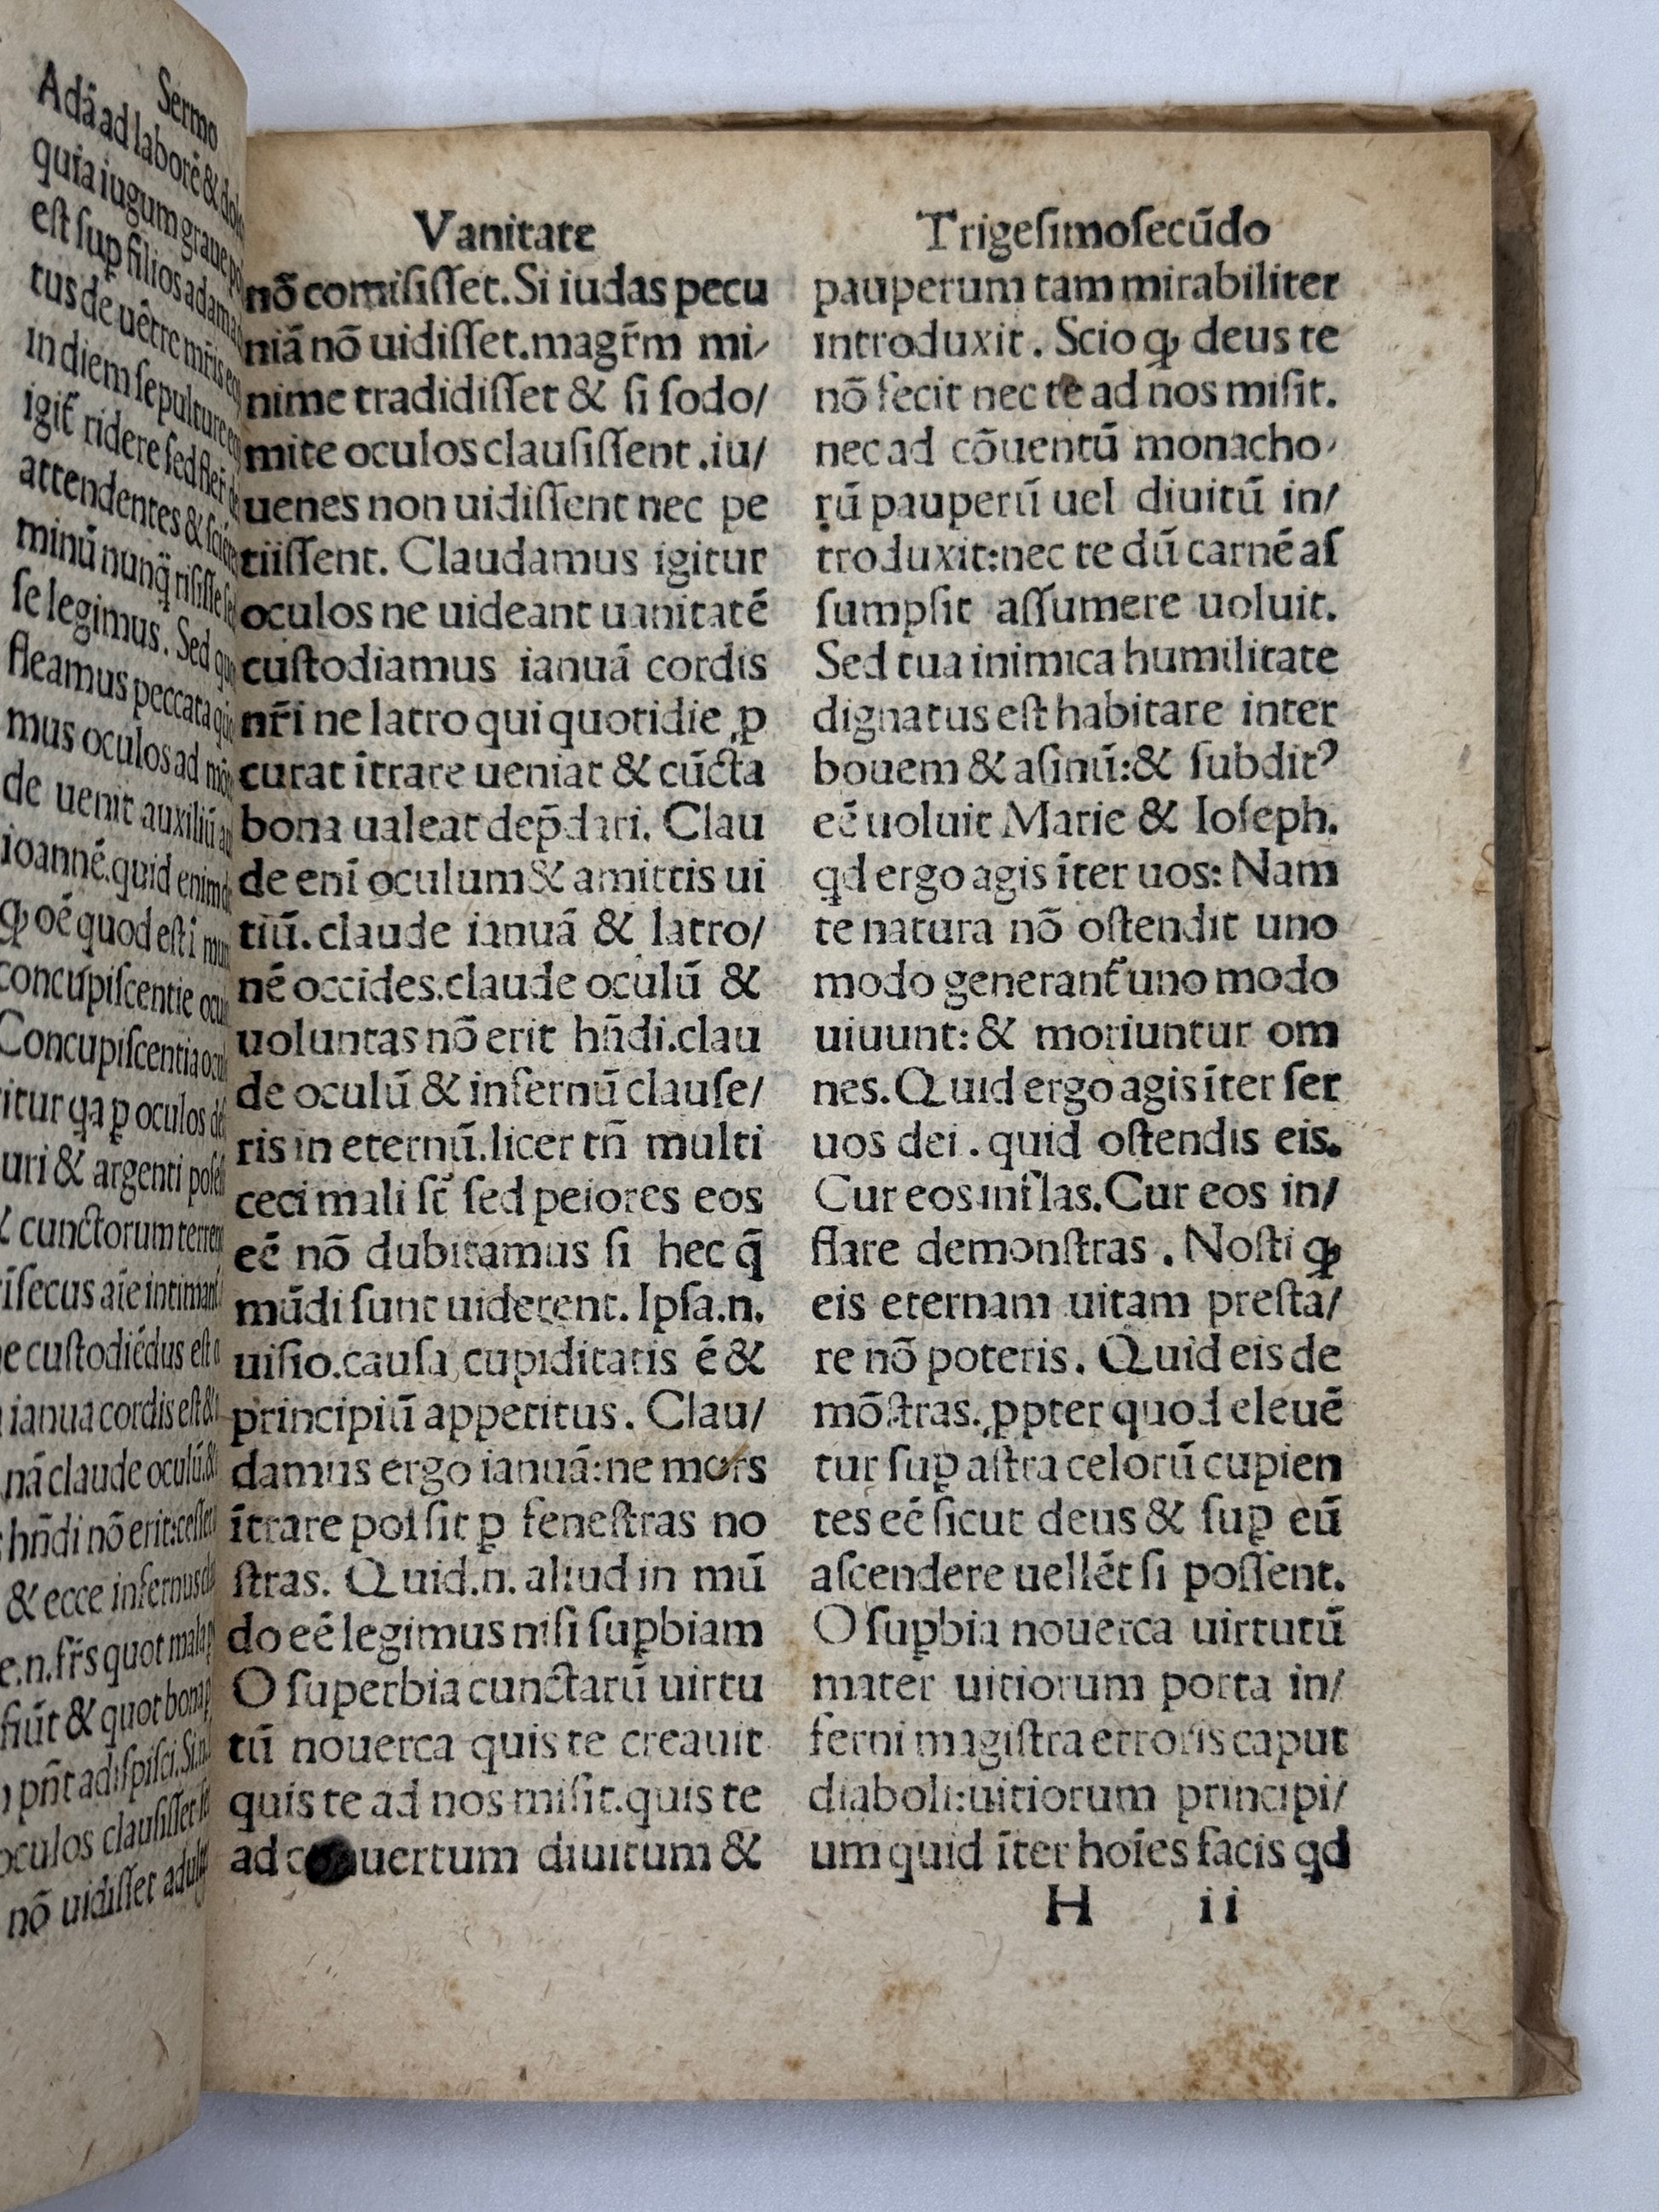 Sermo
Adā ad laborē & dolo
quia iugum graue po
est suꝑ filios adam a
tus de uētre mr̄is eoꝝ
in diem sepulture
igit̄ ridere sed flere
attendentes & scien
minū nunq̄ risisse
se legimus. Sed
fleamus peccata
mus oculos ad
de uenit auxiliū
ioannē. quid enim
ꝙ oē quod est ī mun
concupiscentie ocu
Concupiscentia ocu
itur qa ꝑ oculos
uri & argenti
& cunctorum
īsecus aīe
e custodiēdus est
ianua cordis est &
nā claude oculū &
hn̄di nō erit:
& ecce infernus
e.n. fr̄s quot mala
fiūt & quot bona
pn̄t adispisci. Si
oculos clausisset
nō uidisset adul
Vanitate
nō comisisset. Si iudas pecu
niā nō uidisset. magr̄m mi/
nime tradidisset & si sodo/
mite oculos clausissent .iu/
uenes non uidissent nec pe
tiissent. Claudamus igitur
oculos ne uideant uanitatē
custodiamus ianuā cordis
nr̄i ne latro qui quotidie ꝓ
curat ītrare ueniat & cūcta
bona ualeat dep̄dari. Clau
de enī oculum & amittis ui
tiū. claude ianuā & latro/
nē occides. claude oculū &
uoluntas nō erit hn̄di. clau
de oculū & infernū clause/
ris in eternū. licet tn̄ multi
ceci mali st̄ sed peiores eos
eē nō dubitamus si hec q̄
mūdi sunt uiderent. Ipsa.n.
uisio. causa cupiditatis ē &
principiū appetitus. Clau/
damus ergo ianuā: ne mors
ītrare possit ꝑ fenestras no
stras. Quid.n. aliud in mū
do eē legimus nisi suꝑbiam
O superbia cunctarū uirtu
tū nouerca quis te creauit
quis te ad nos misit. quis te
ad c uertum diuitum &
Trigesimosecūdo
pauperum tam mirabiliter
introduxit. Scio ꝙ deus te
nō fecit nec te ad nos misit.
nec ad cōuentū monacho/
rū pauperū uel diuitū in/
troduxit: nec te dū carnē as
sumpsit assumere uoluit.
Sed tua inimica humilitate
dignatus est habitare inter
bouem & asinū: & subditꝰ
eē uoluit Marie & Ioseph.
qd ergo agis īter uos: Nam
te natura nō ostendit uno
modo generant̄ uno modo
uiuunt: & moriuntur om
nes. Quid ergo agis īter ser
uos dei. quid ostendis eis.
Cur eos inflas. Cur eos in/
flare demonstras. Nosti ꝙ
eis eternam uitam presta/
re nō poteris. Quid eis de
mōstras. ꝓpter quod eleuē
tur suꝑ astra celorū cupien
tes eē sicut deus & suꝑ eū
ascendere uellēt si possent.
O suꝑbia nouerca uirtutū
mater uitiorum porta in/
ferni magistra erroris caput
diaboli: uitiorum principi/
um quid īter hoīes facis qd
H ii